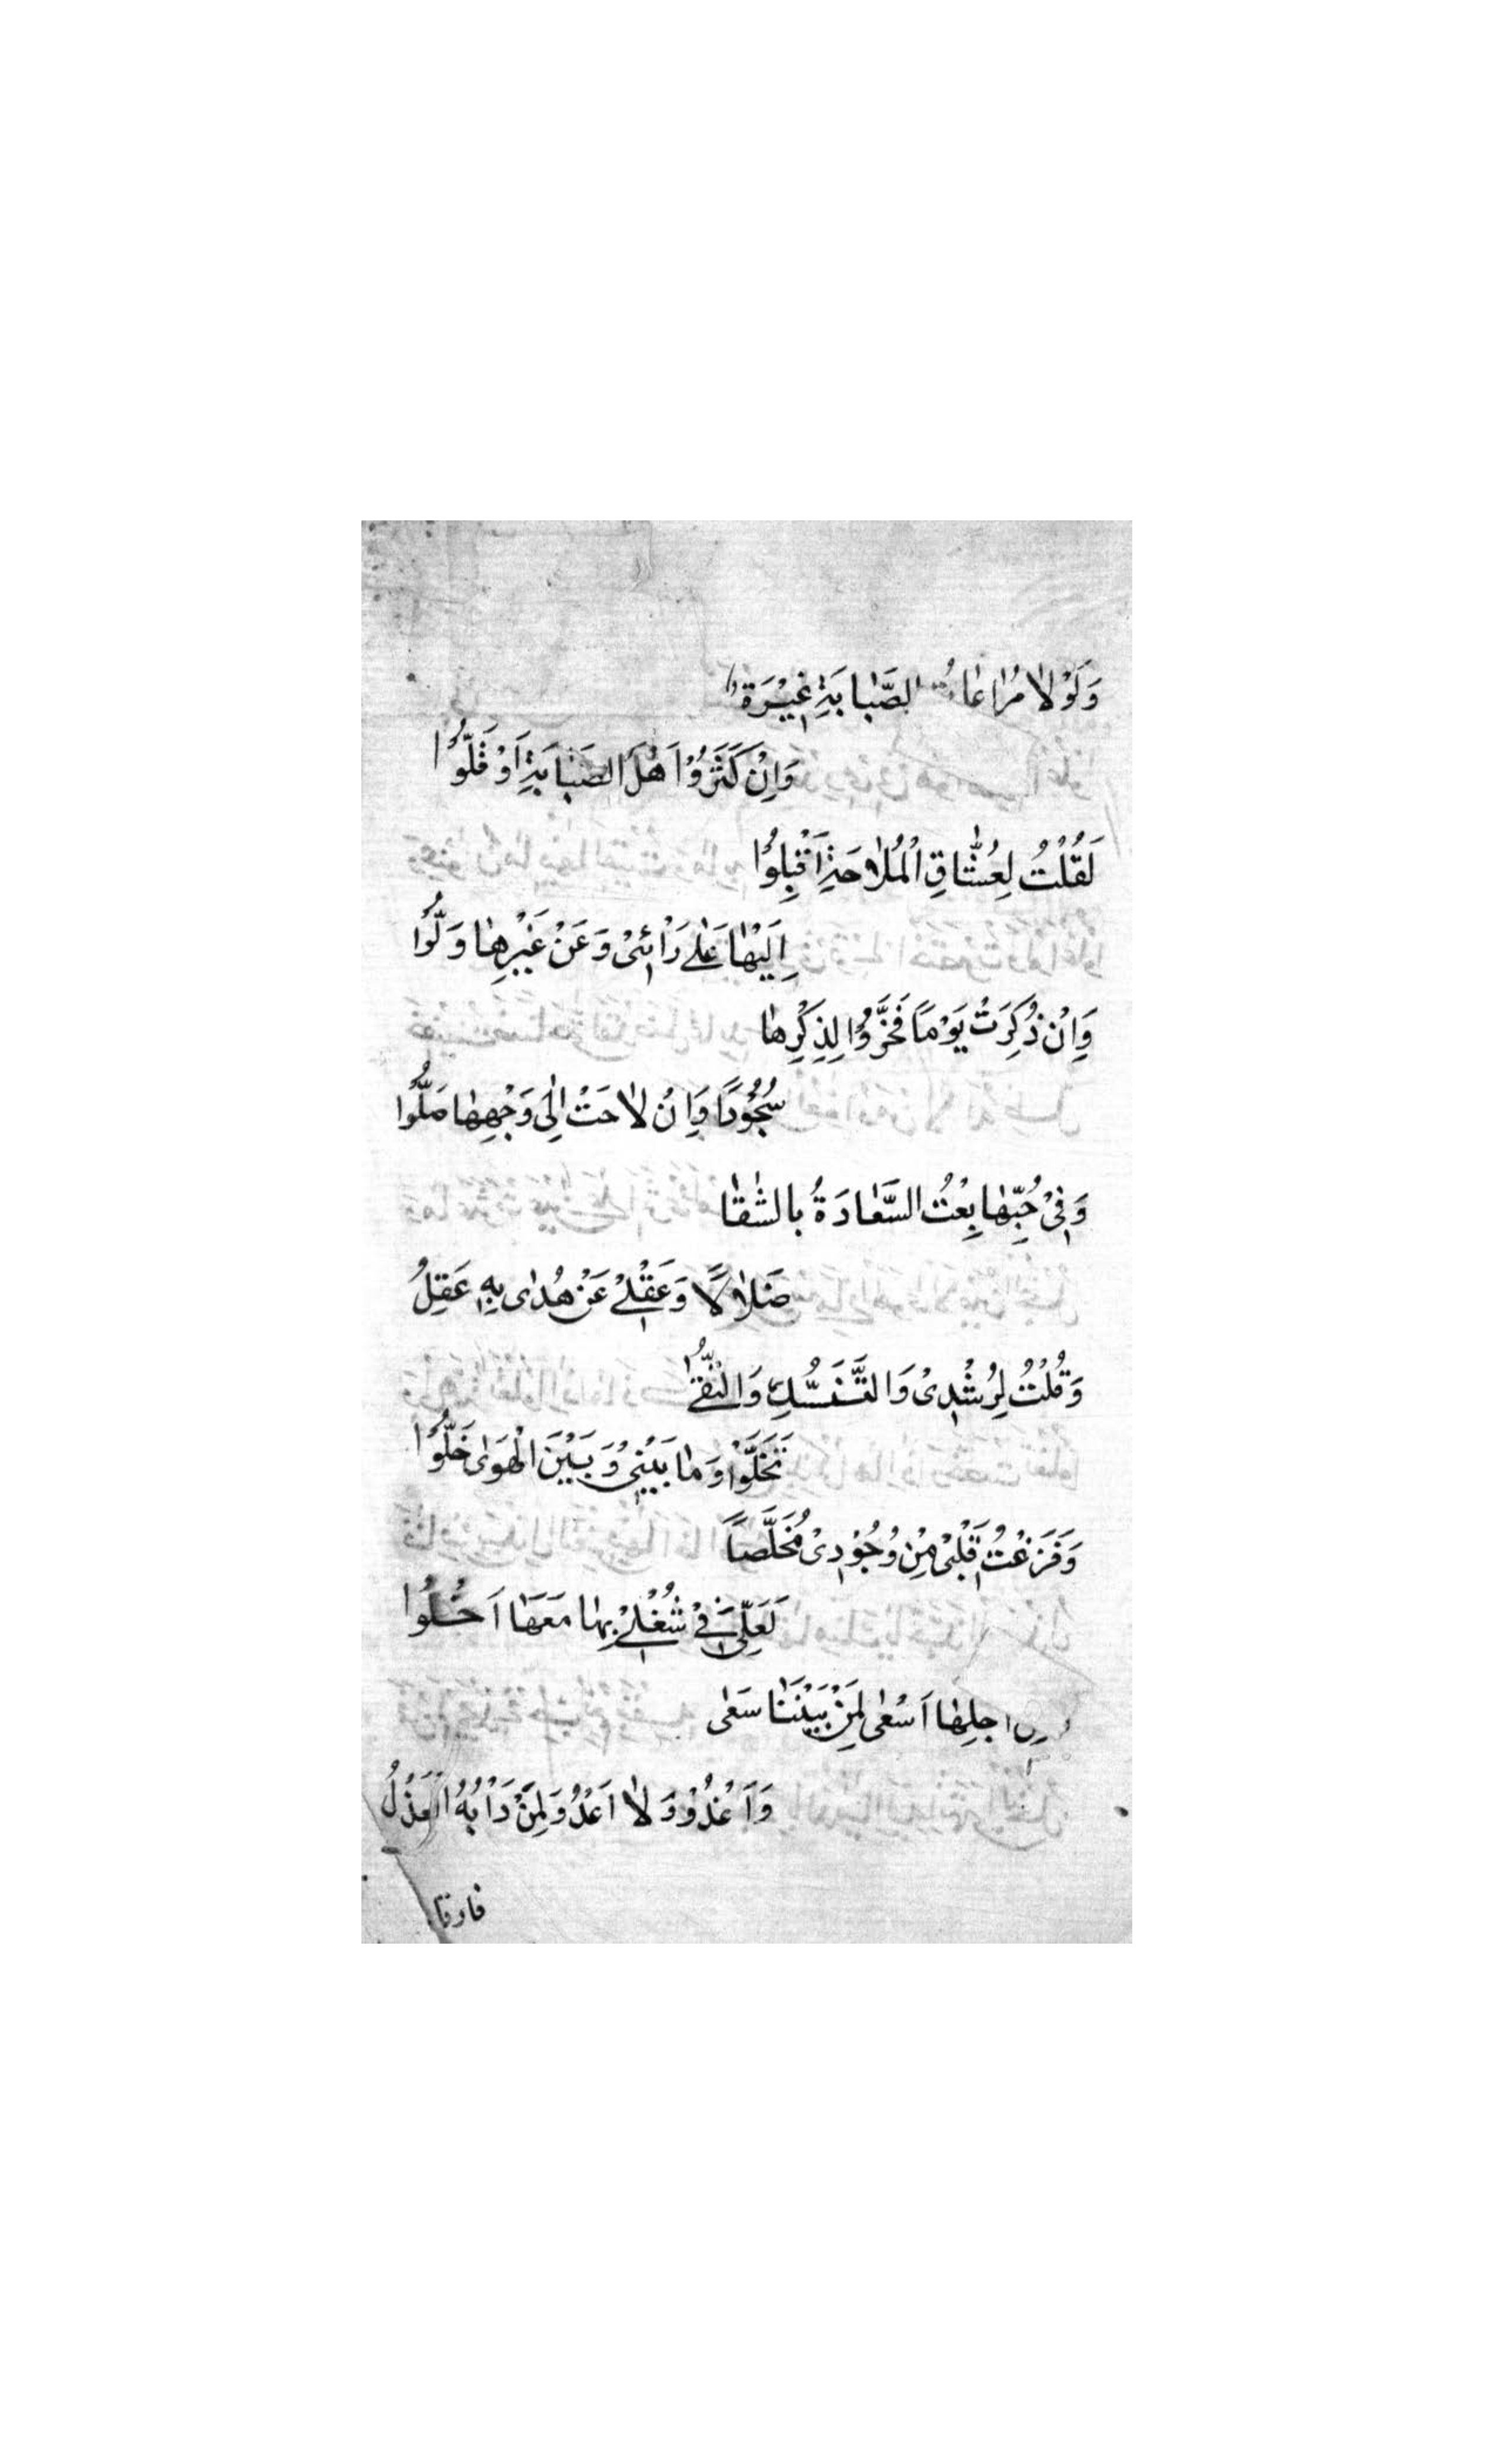 وَلَوْلَا مُرَاعَاتُ الصَّبَابَةِ غِيْرَةً
وَاِنْ كَثَرُوْا اَهْلَ الصَبَابَةِ اَوْ قَلُّوُا
لَقُلْتُ لِعُشَّاقِ الْمُلَاحَةِ اَقْبِلُوُا
اِلَيْهَا عَلٰے رَائِىْ وَعَنْ غَيْرِهَا وَلُّوُا
وَاِنْ ذُكِرَتْ يَوْمَاً فَخَرُّوُا لِذِكْرِهَا
سُجُوْدًا وَاِنْ لَاحَتْ اِلٰى وَجْهِهَا صَلُّوُا
وَفِىْ حُبِّهَا بِعْتُ السَّعَادَةُ بِالشَقَا
ضَلَالًا وَعَقْلِےْ عَنْ هُدٰاى بِهِ عَقِلُ
وَقُلْتُ لِرُشْدِىْ وَالتَّنَسُّكِ وَالتُّقٰے
تَخَلَّوْا وَمَا بَيْنِىْ وَبَيْنَ الْهَوٰى خَلُّوُا
وَفَرَغْتُ قَلْبِىْ مِنْ وُجُوْدِىْ مُخَلَّصَاً
لَعَلِّىَ فِےْ شُغْلِےْ بِهَا مَعَهَا اَخْلُوُا
اجلِهَا اَسْعٰى لِمَنْ بَيْنَنَا سَعٰى
وَاَغْدُوْ وَلَا اَعْدُوْ لِمَنْ دَاْبُهُ الْعَذْلُ
فارقا